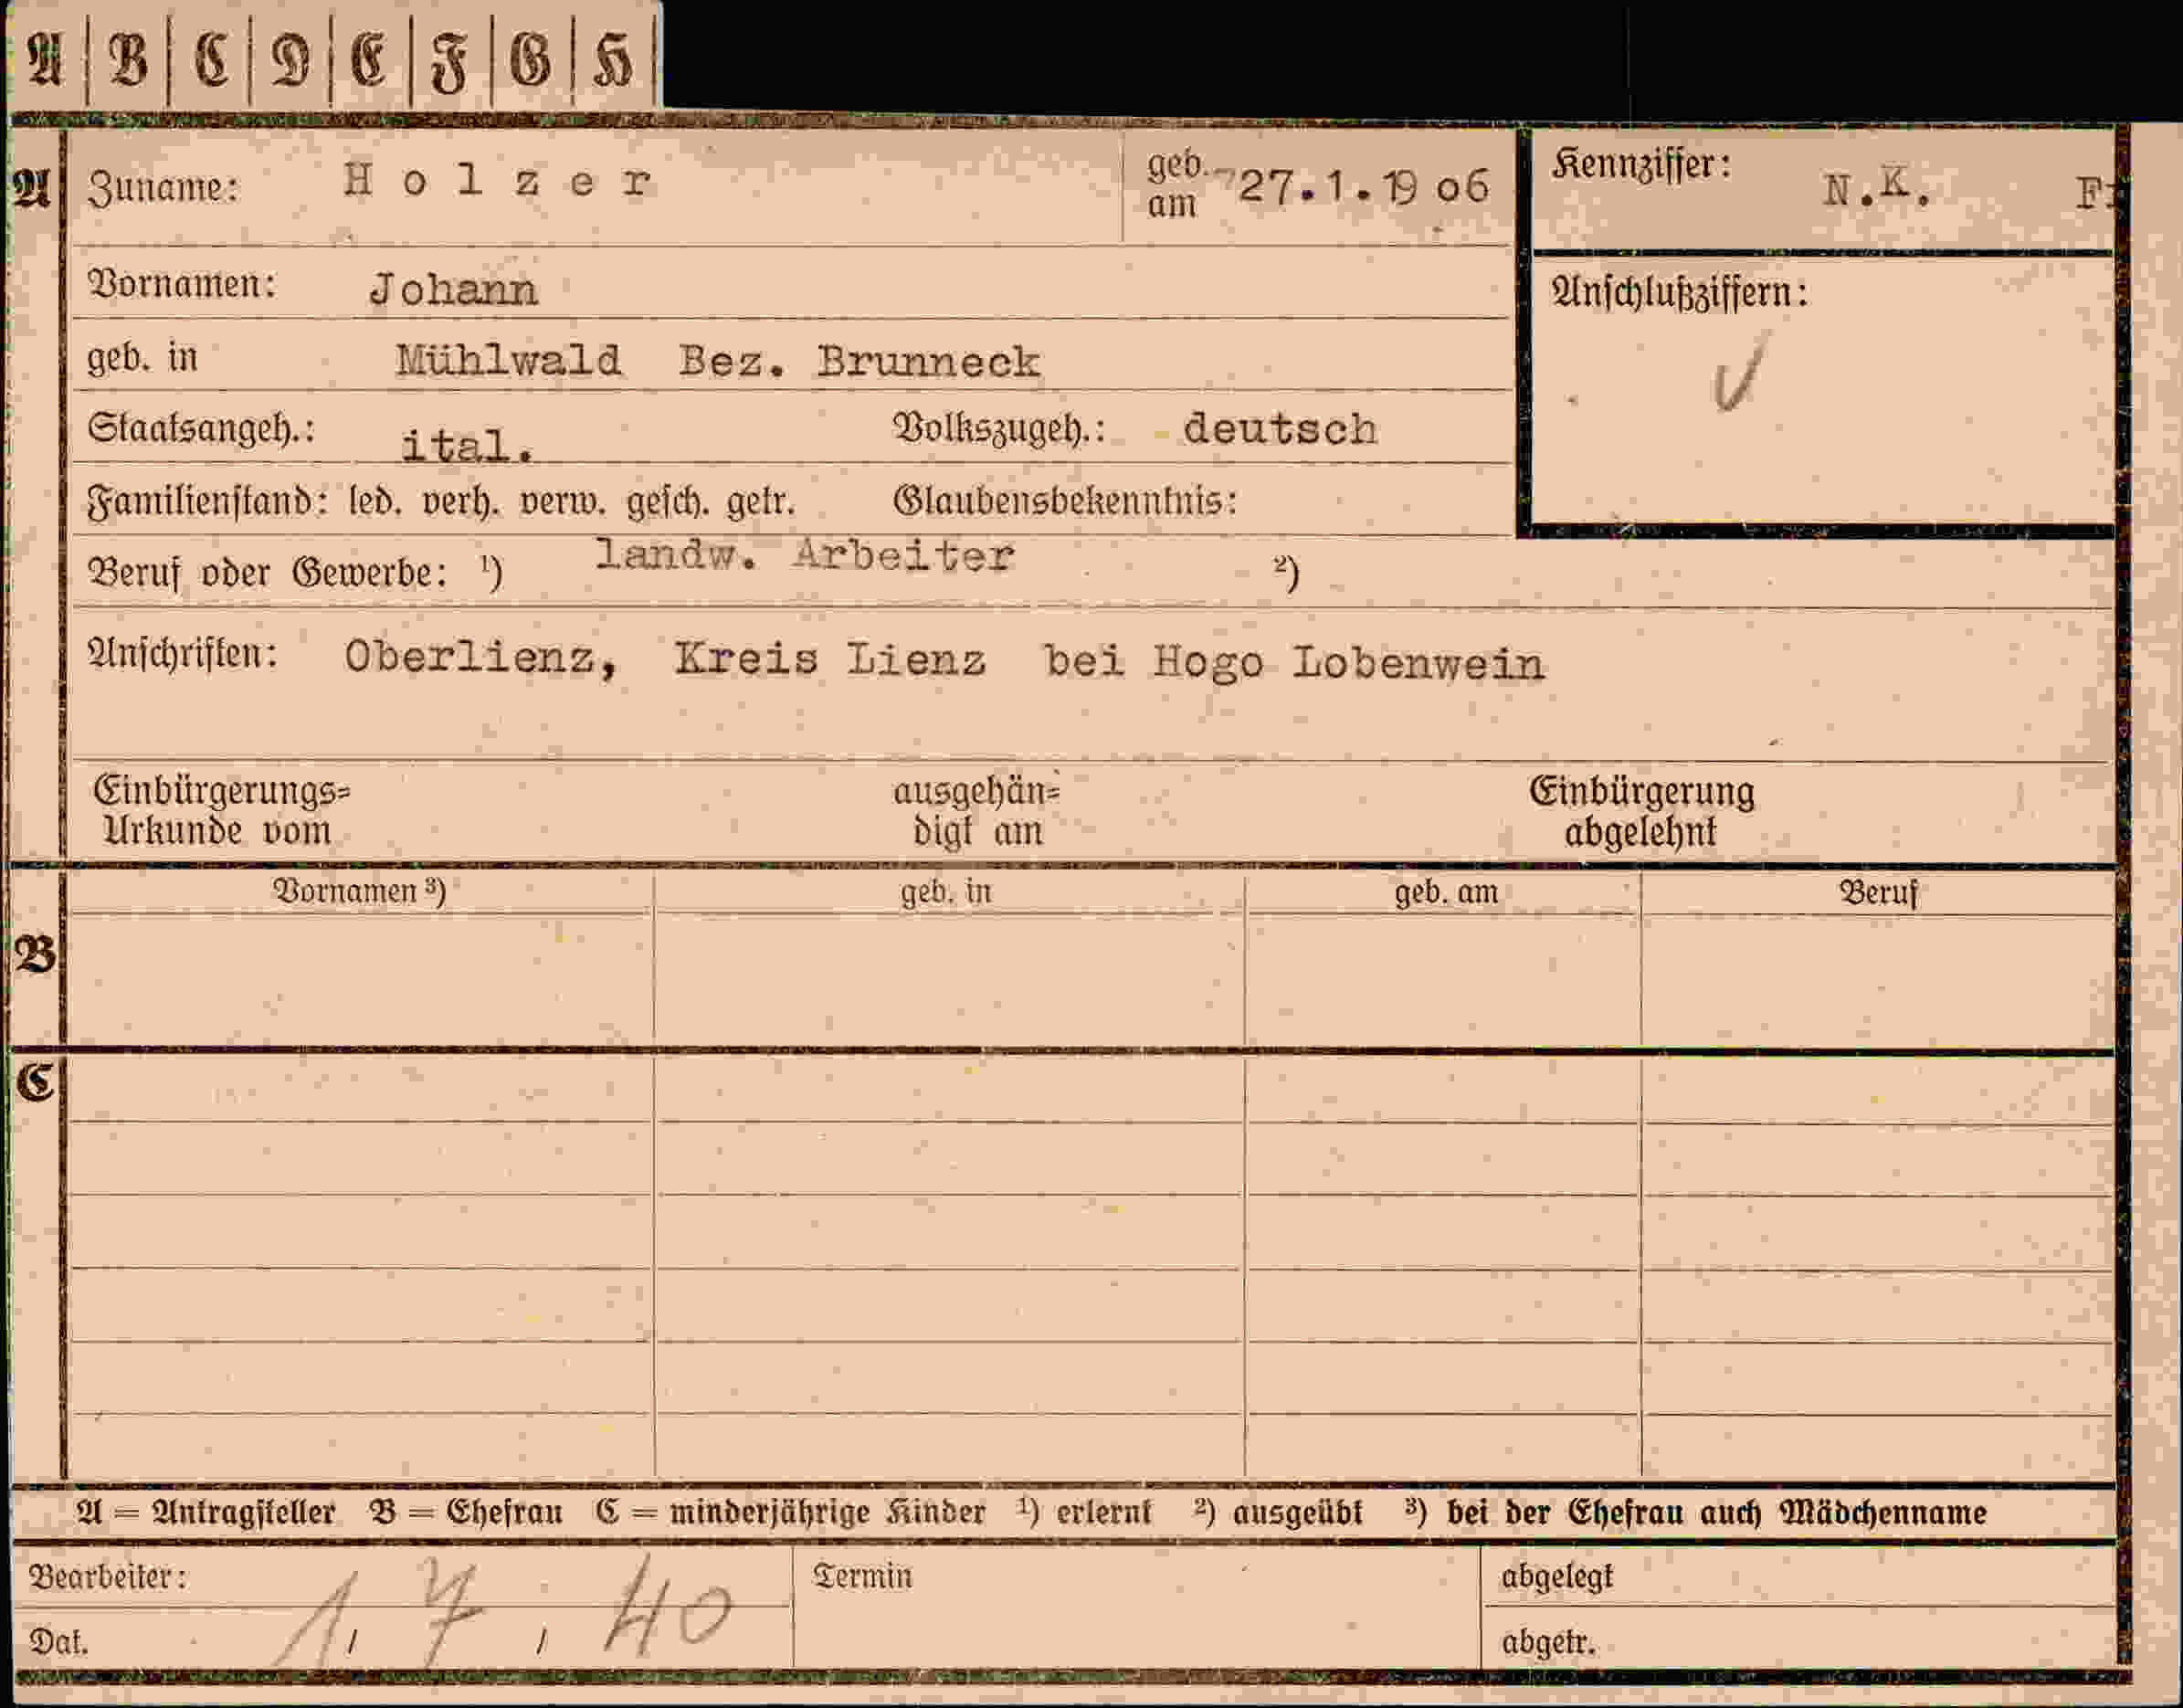 A | B | C | D | E | F | G | H |
A Zuname: Holzer geb. am 27.1.19 o6 Kennziffer: N.K.
Vornamen: Johann Anschlußziffern:
geb. in Mühlwald Bez. Brunneck
Staatsangeh.: ital. Volkszugeh.: deutsch
Familienstand: led. verh. verw. gesch. getr. Glaubensbekenntnis:
Beruf oder Gewerbe: ¹) landw. Arbeiter ²)
Anschriften: Oberlienz, Kreis Lienz bei Hogo Lobenwein
Einbürgerungs= ausgehän= Einbürgerung
Urkunde vom digt am abgelehnt
Vornamen ³) geb. in geb. am Beruf
B
C
A = Antragsteller B = Ehefrau C = minderjährige Kinder ¹) erlernt ²) ausgeübt ³) bei der Ehefrau auch Mädchenname
Bearbeiter: Termin abgelegt
Dat. 1, 7, 40 abgetr.